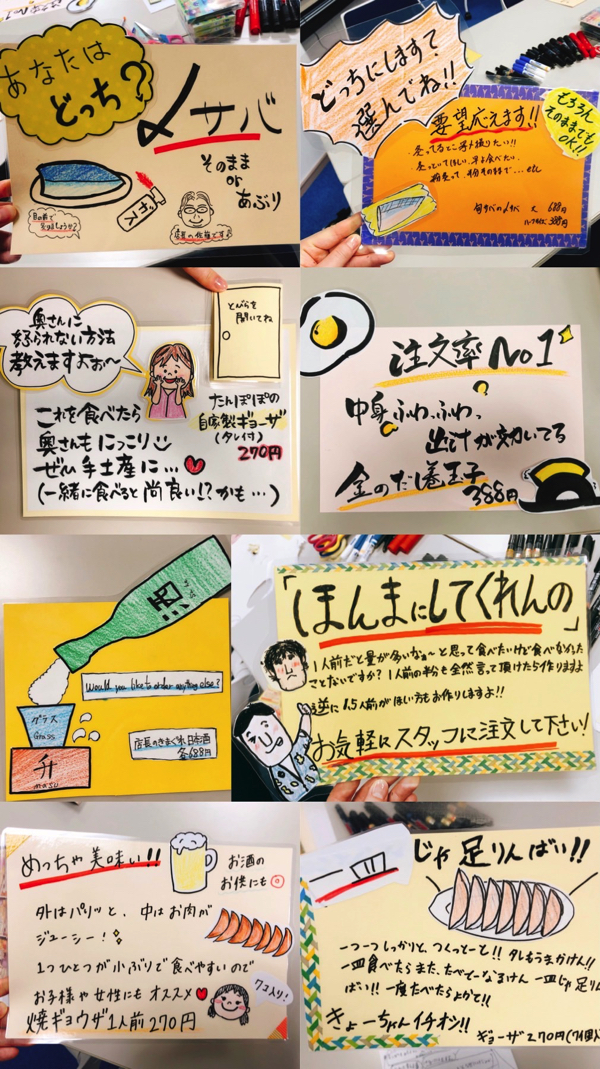 あなたは
どっち?
〆サバ
そのまま
or
あぶり
ガス
目の前で
店長の似顔です
どっちにします?
選んでね!!
要望応えます!!
もちろん
そのままでも
OK!!
大 688円
ハーフサイズ 388円
奥さんに
怒られない方法
教えますよぉ〜
とびらを
開いてね
これを食べたら
奥さんもにっこり
ぜひ手土産に…
(一緒に食べると尚良い!?かも…)
たんぽぽの
自家製ギョーザ
(タレ付)
270円
注文率No1
中身ふわっふわっ
出汁が効いてる
金のだし巻玉子
388円
Would you like to order anything else?
グラス
Glass
升
masu
店長のきまぐれ日本酒
各688円
「ほんまにしてくれんの」
1人前だと量が多いなぁ〜と思って食べたいけど食べなかった
ことないですか?1人前の半分も全然言って頂けたら作りますよ
逆に1.5人前がほしい方もお作りしますよ!!
お気軽にスタッフに注文して下さい!
めっちゃ美味い!!
お酒の
お供にも◎
外はパリッと、中はお肉が
ジューシー!
1つひとつが小ぶりで食べやすいので
お子様や女性にもオススメ
7コ入り!
焼ギョウザ1人前270円
一皿
じゃ足りんばい!!
一つ一つしっかりと、つくっとーと!!タレもうまかけん!!
一皿食べたらまた、たべとーなるけん 一皿じゃ足りん
ばい!!一度たべたらよかと!!
きょーちゃんイチオシ!!
ギョーザ270円(7個入)